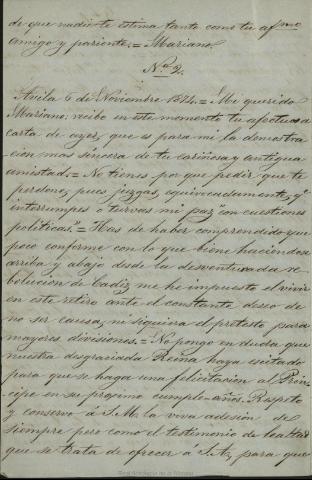 de que nadie te estima tanto como tu af.mo
amigo y pariente.= Mariano.
N.o 2.
Avila 6 de Noviembre 1874.= Mi querido
Mariano: recibo en este momento tu afectuosa
carta de ayer, que es para mi la demostra
cion mas sincera de tu cariñosa y antigua
amistad.= No tienes por que pedir que te
perdone, pues juzgas, equivocadamente, q.e
interrumpes o turvas mi paz "en cuestiones
politicas".= Has de haber comprendido que
poco conforme con lo que biene haciendose
arriba y abajo desde la desventurada re
bolucion de Cadiz, me he impuesto el vivir
en este retiro ante el constante deseo de
no ser causa, ni siquiera el pretesto para
mayores divisiones.= No pongo en duda que
nuestra desgraciada Reina haya escitado
para que se haga una felicitacion al Prin
cipe en su procsimo cumple-años. Respeto
y conservo a S.M. la viva adesion de
siempre pero como el testimonio de lealtad
que se trata de ofrecer á S.A., para que